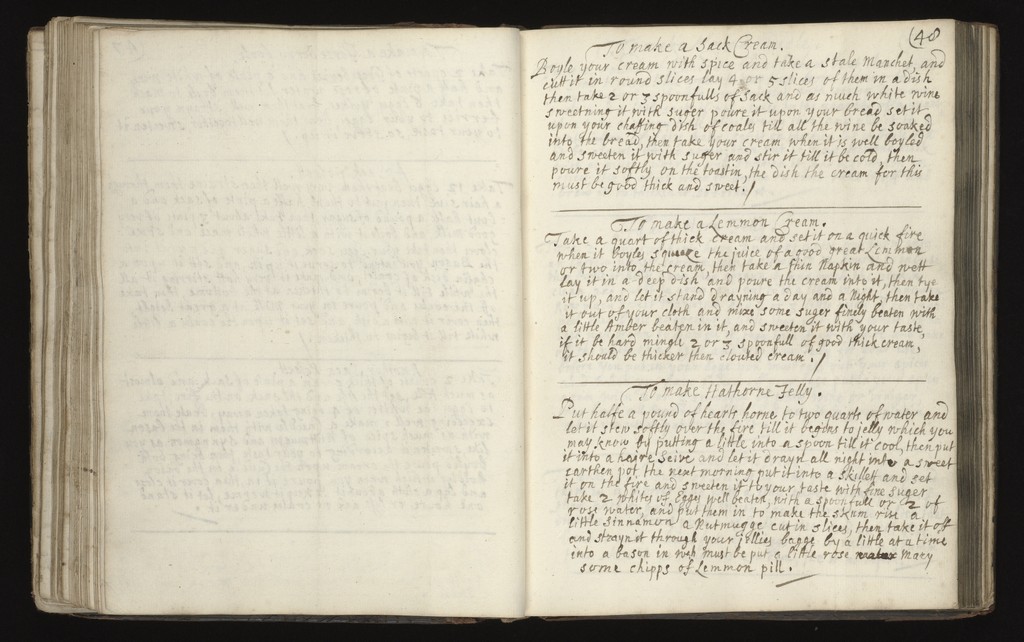 (48
To make a Sack Cream.
Boyle your cream with spice and take a stale Manchet, and
cutt it in round slices lay 4 or 5 slices of them in a dish
then take 2 or 3 spoonfulls of Sack and as much white wine
sweetning it with suger poure it upon your bread set it
upon your chaffing dish of coales till all the wine be soaked
into the bread, then take your cream when it is well boyled
and sweeten it with suger and stir it till it be cold, then
poure it softly on the toast in the dish the cream for this
must be good thick and sweet. /
To make a Lemmon Cream.
Take a quart of thick cream and set it on a quick fire
when it boyles squeeze the juice of a good great Lemmon
or two into the cream, then take a thin Napkin and wett
lay it in a deep dish and poure the cream into it, then tye
it up, and let it stand drayning a day and a Night, then take
it out of your cloth and mixe some suger finely beaten with
a little Amber beaten in it, and sweeten it with your taste,
if it be hard mingle 2 or 3 spoonfull of good thick cream,
it should be thicker then clouted cream. /
To make Hathorne Jelly.
Put halfe a pound of hearts horne to two quarts of water and
let it stew softly over the fire till it begins to jelly which you
may know by putting a little into a spoon till it cool, then put
it into a haire seive and let it drayn all night into a sweet
earthen pot the next morning put it into a skillett and set
it on the fire and sweeten it to your taste with fine suger
take 2 whites of Egges well beaten, with a spoonfull or 2 of
rose water, and put them in to make the skum rise a
little Sinnamon a Nutmugge cut in slices, then take it off
and strayn it through your jellies bagge by a little at a time
into a bason in wch must be put a little rose Mary
some chipps of Lemmon pill.